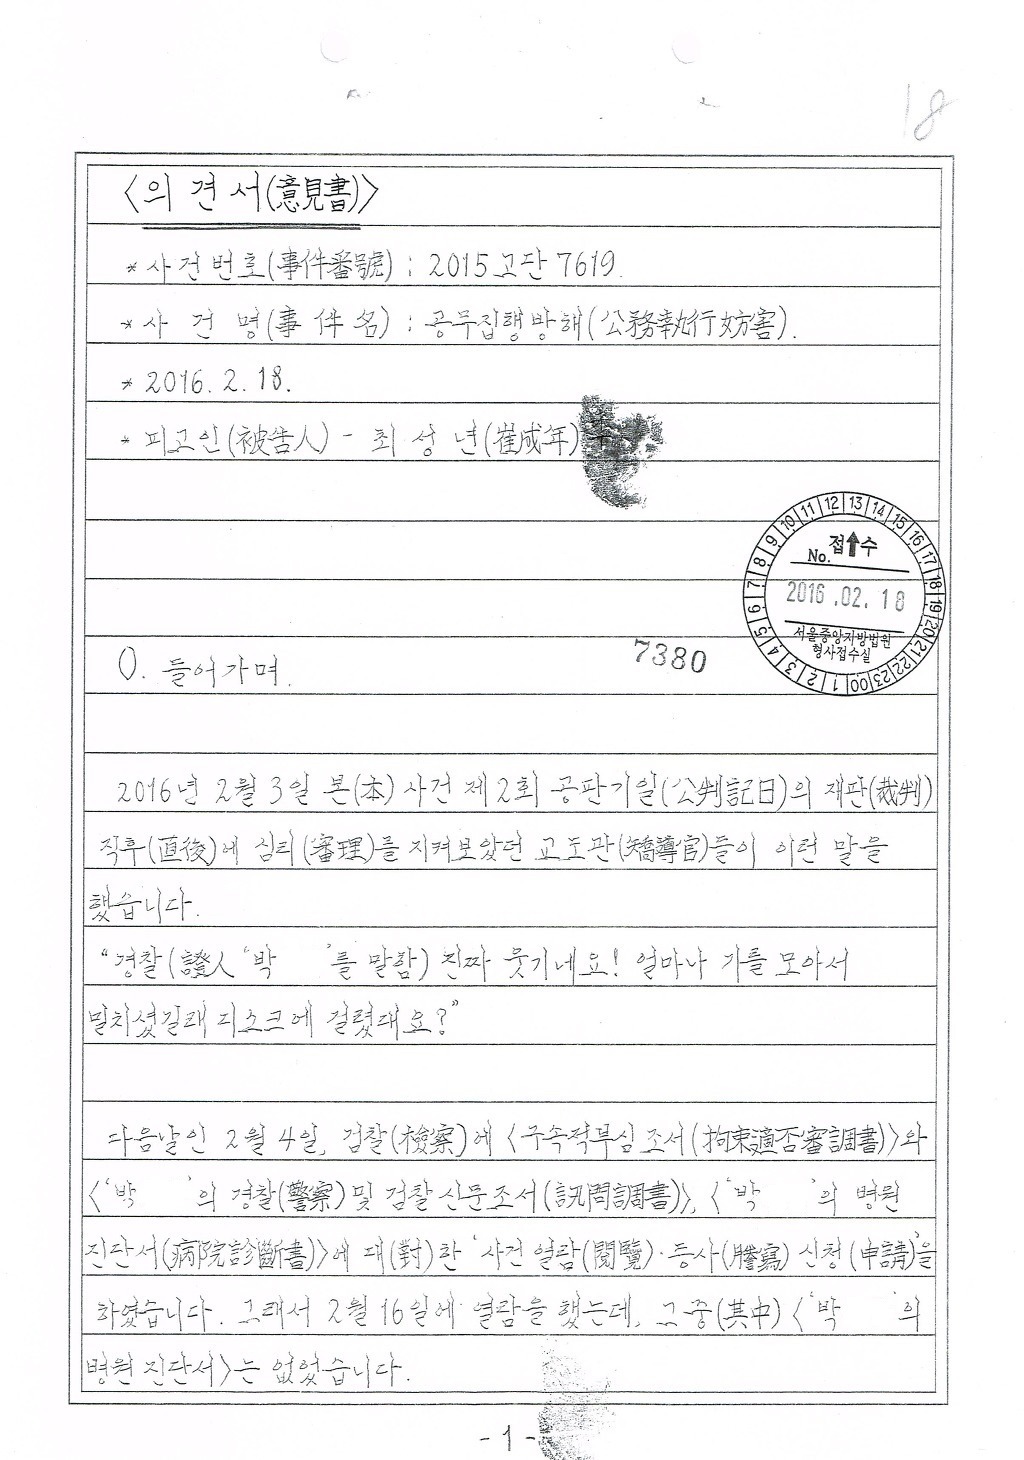 18
<의 견 서(意見書)>
* 사건번호(事件番號) : 2015고단7619.
* 사 건 명(事 件 名) : 공무집행방해(公務執行妨害).
* 2016. 2. 18.
* 피고인(被告人) - 최 성 년(崔成年)
접↑수
No.
2016.02.18
서울중앙지방법원
형사접수실
00 1 2 3 4 5 6 7 8 9 10 11 12 13 14 15 16 17 18 19 20 21 22 23
7380
0. 들어가며.
2016년 2월 3일 본(本) 사건 제2회 공판기일(公判記日)의 재판(裁判)
직후(直後)에 심리(審理)를 지켜보았던 교도관(矯導官)들이 이런 말을
했습니다.
“경찰(證人 ‘박 ’를 말함) 진짜 웃기네요! 얼마나 기를 모아서
밀치셨길래 디스크에 걸렸대요?”
다음날인 2월 4일, 검찰(檢察)에 <구속적부심 조서(拘束適否審調書)>와
<‘박 ’의 경찰(警察) 및 검찰 신문조서(訊問調書)>, <‘박 ’의 병원
진단서(病院診斷書)>에 대(對)한 ‘사건 열람(閱覽)·등사(謄寫) 신청(申請)’을
하였습니다. 그래서 2월 16일에 열람을 했는데, 그 중(其中) <‘박 ’의
병원 진단서>는 없었습니다.
- 1 -